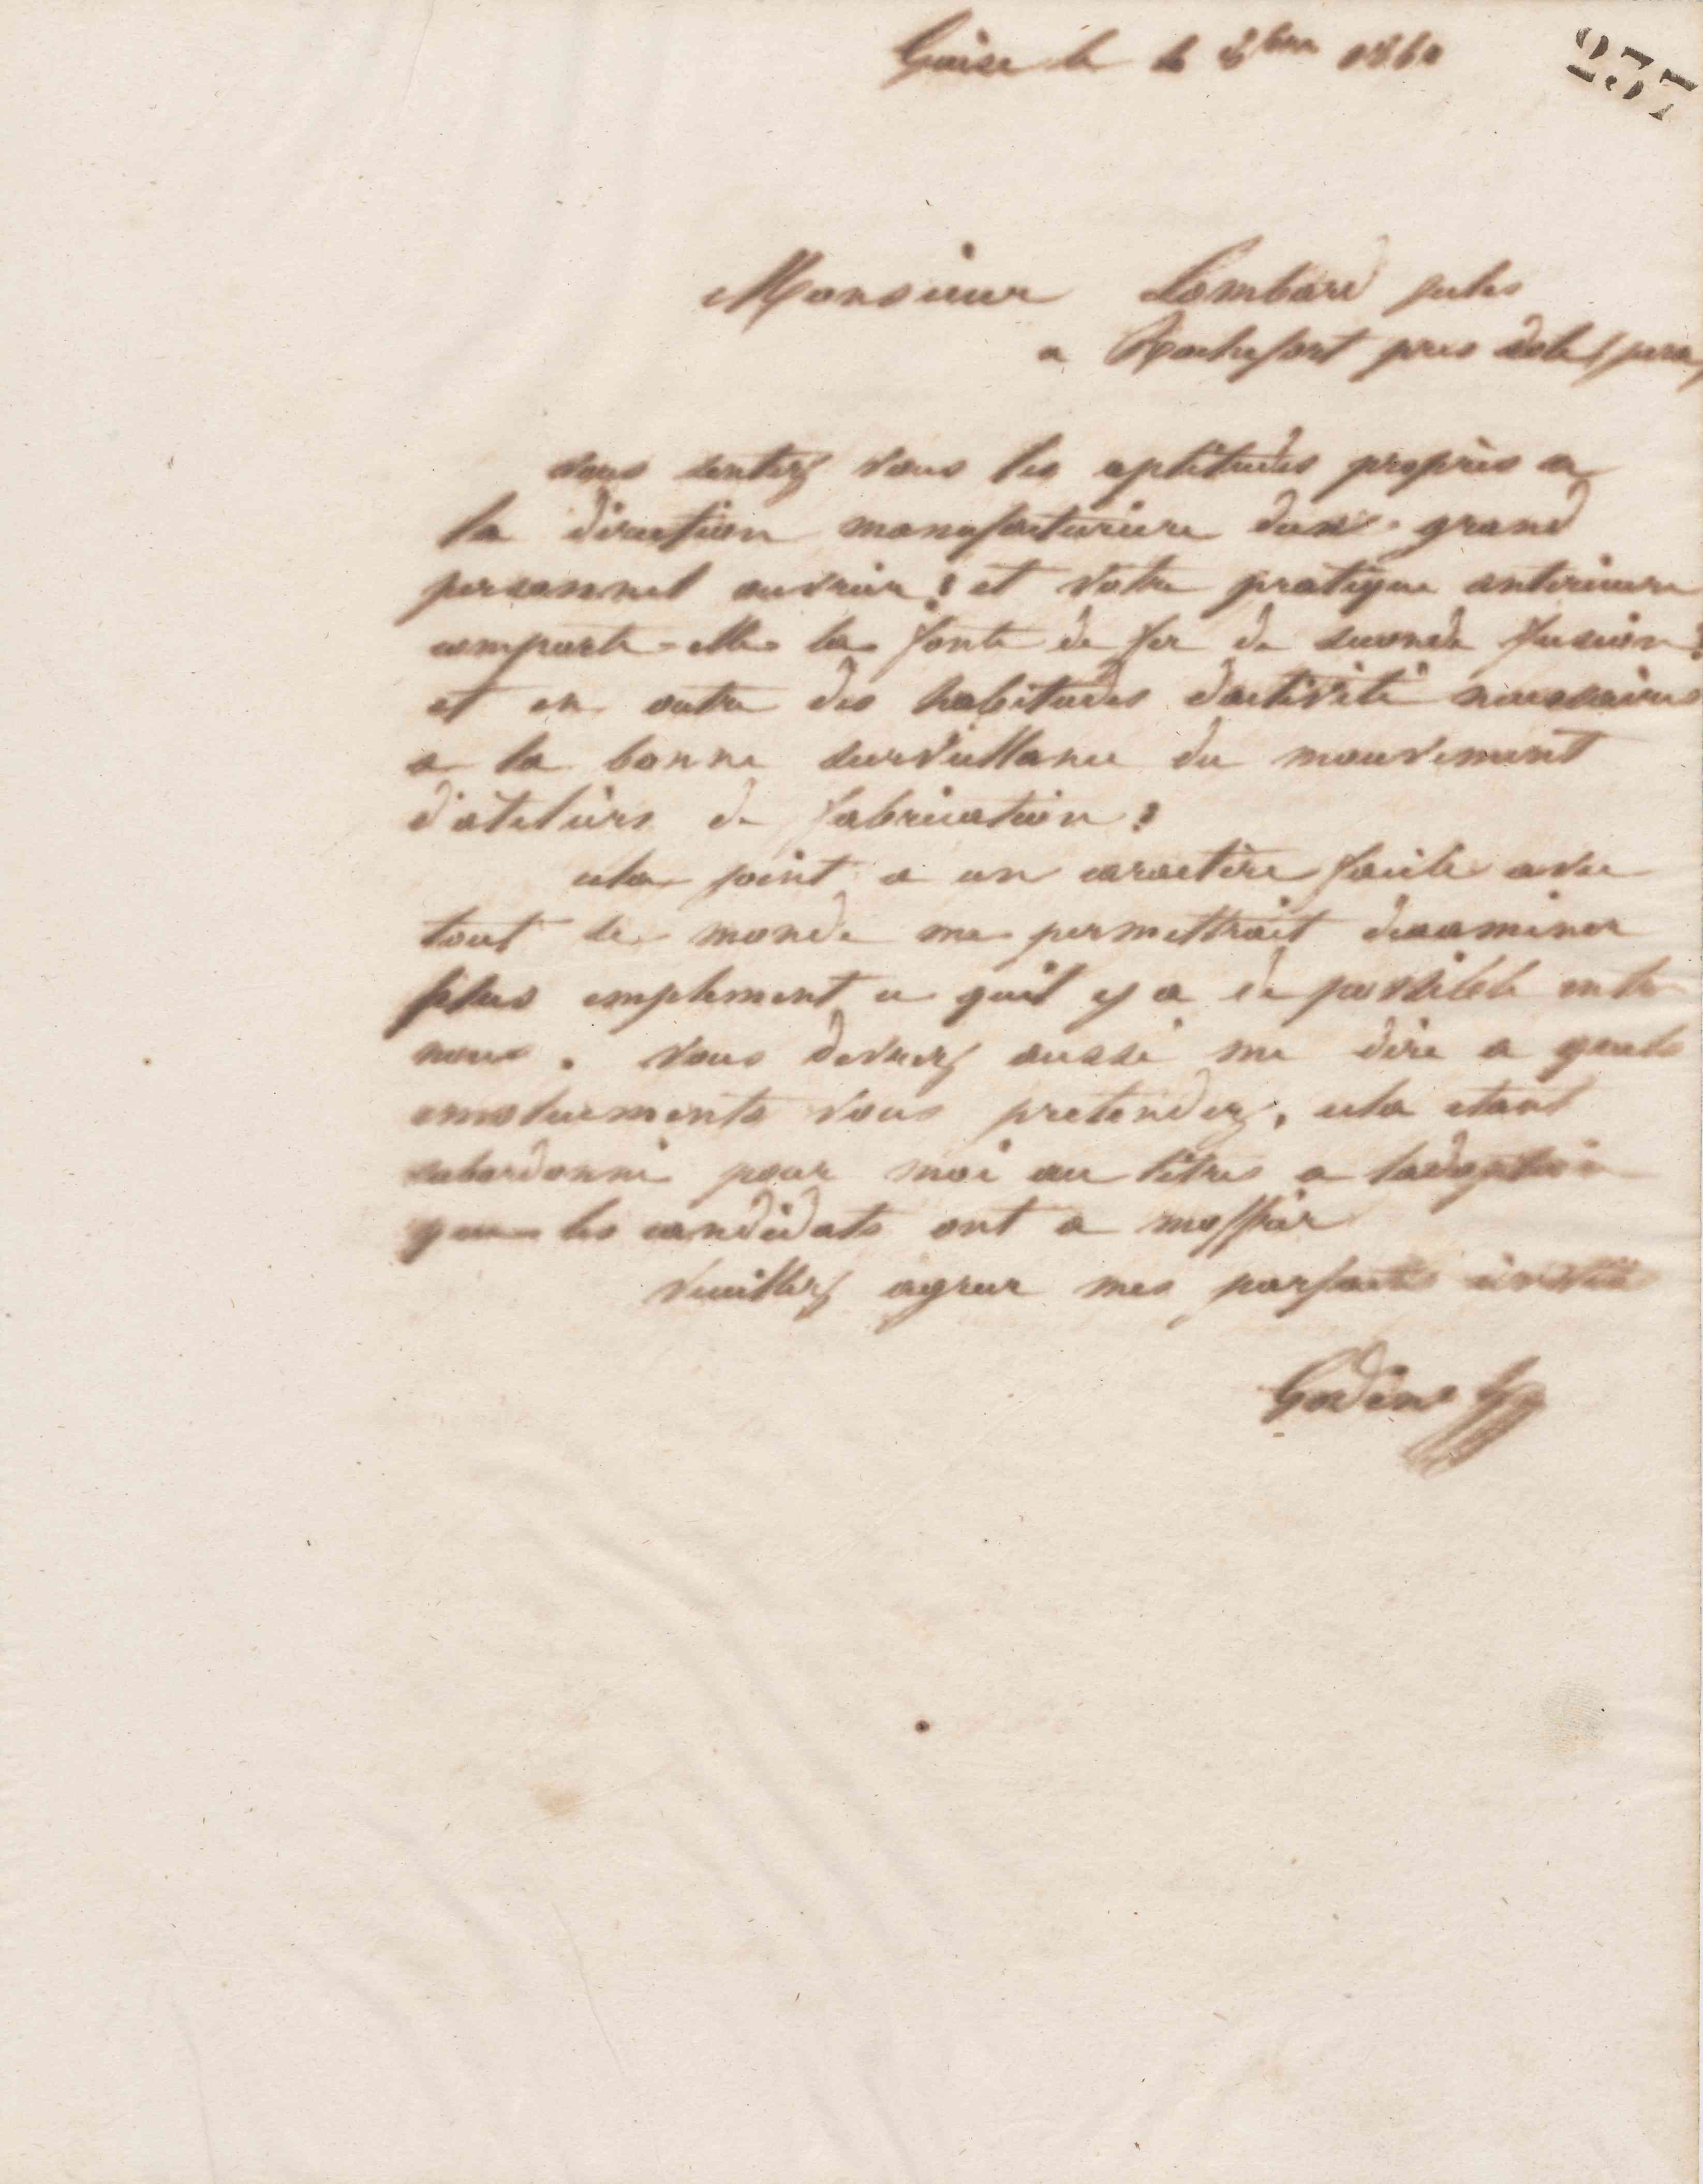 Guise le 8bre 186
237
Monsieur Lombard jules
a Rochefort pres dole (jura)
vous sentez vous les aptitudes propres a
la direction manufacturiere dun grand
personnel ouvrier? et votre pratique anterieure
comporte-elle la fonte de fer de seconde fusion?
et en outre des habitudes dactivité necessaires
a la bonne surveillance du mouvement
d'ateliers de fabrication?
cela joint a un caractère facile avec
tout le monde me permettrait dexaminer
plus emplement ce quil y a de possible entre
nous. vous devrez aussi me dire a quels
emoluements vous pretendez, cela etant
subordonné pour moi au titres a ladoption
que les candidats ont a moffrir
veuillez agreer mes parfaite civilité
Godin